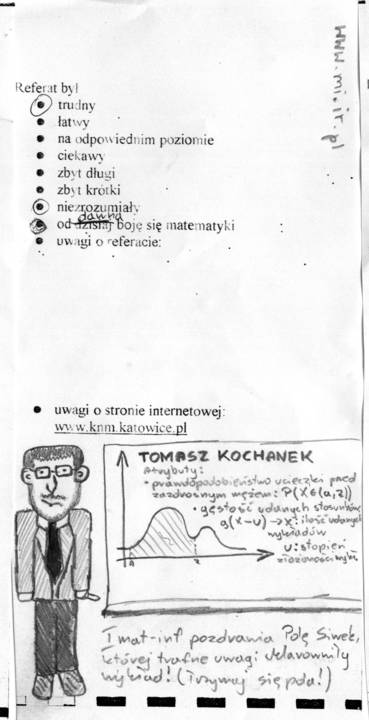 www.mi.ir.pl
Referat był
trudny
łatwy
na odpowiednim poziomie
ciekawy
zbyt długi
zbyt krótki
niezrozumiały
dawna
od dzisiaj boję się matematyki
uwagi o referacie:
uwagi o stronie internetowej:
www.knm.katowice.pl
TOMASZ KOCHANEK
Atrybuty:
• prawdopodobieństwo ucieczki przed
zazdrosnym mężem: P(X∈(a,z))
• gęstość udanych stosunków
g(x-u) → x: ilość udanych
wykładów
u: stopień
złożoności
I mat-inf pozdrawia Polę Siwek,
której trafne uwagi
wykład! (Trzymaj się pola!)